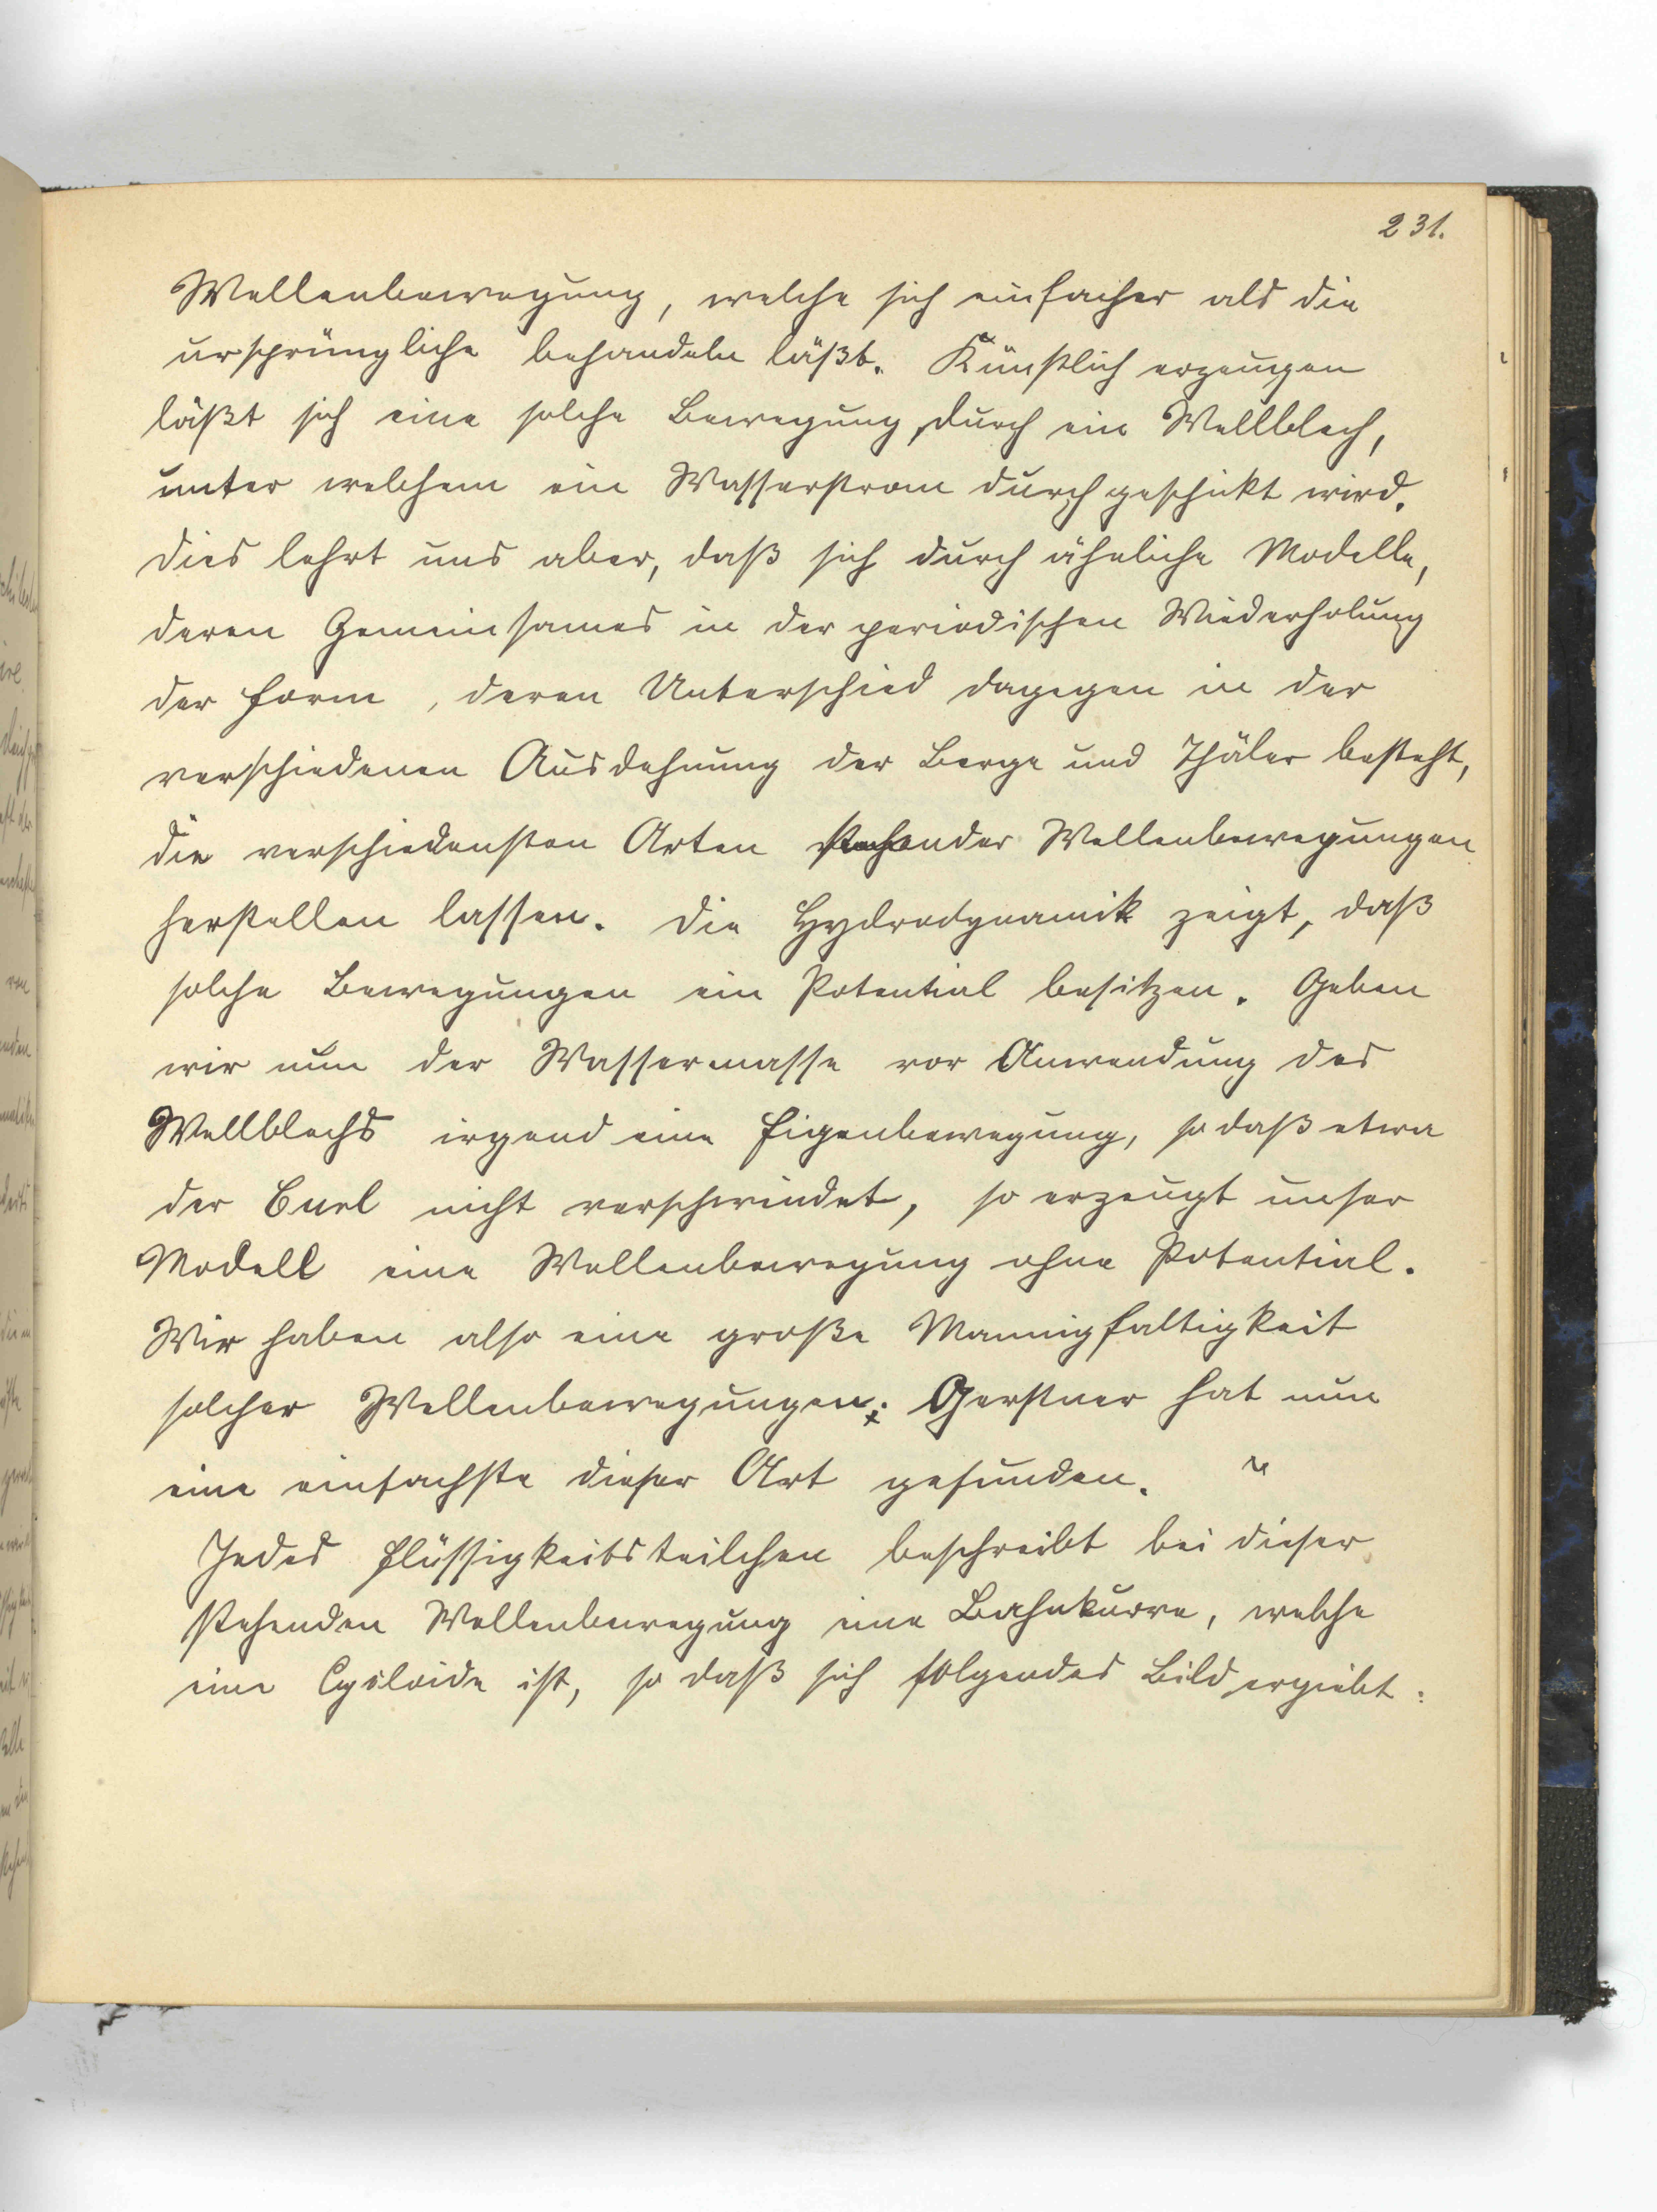 231.
Wellenbewegung, welche sich einfacher als die
ursprüngliche behandeln läßt. Künstlich erzeugen
läßt sich eine solche Bewegung, durch ein Wellblech,
unter welchem ein Wasserstrom durchgeschickt wird.
Dies lehrt uns aber, daß sich durch ähnliche Modelle,
deren Gemeinsames in der periodischen Wiederholung
der Form, deren Unterschied dagegen in der
verschiedenen Ausdehnung der Berge und Thäler besteht,
die verschiedensten Arten stehender Wellenbewegungen
herstellen lassen. Die Hydrodynamik zeigt, daß
solche Bewegungen ein Potential besitzen. Geben
wir nun der Wassermasse vor Anwendung des
Wellblechs irgend eine Eigenbewegung, so daß etwa
der Curl nicht verschwindet, so erzeugt unser
Modell eine Wellenbewegung ohne Potential.
Wir haben also eine große Mannigfaltigkeit
solcher Wellenbewegungen; Gerstner hat nun
eine einfachste dieser Art gefunden.
Jedes Flüssigkeitsteilchen beschreibt bei dieser
stehenden Wellenbewegung eine Bahnkurve, welche
eine Cycloide ist, so daß sich folgendes Bild ergiebt: